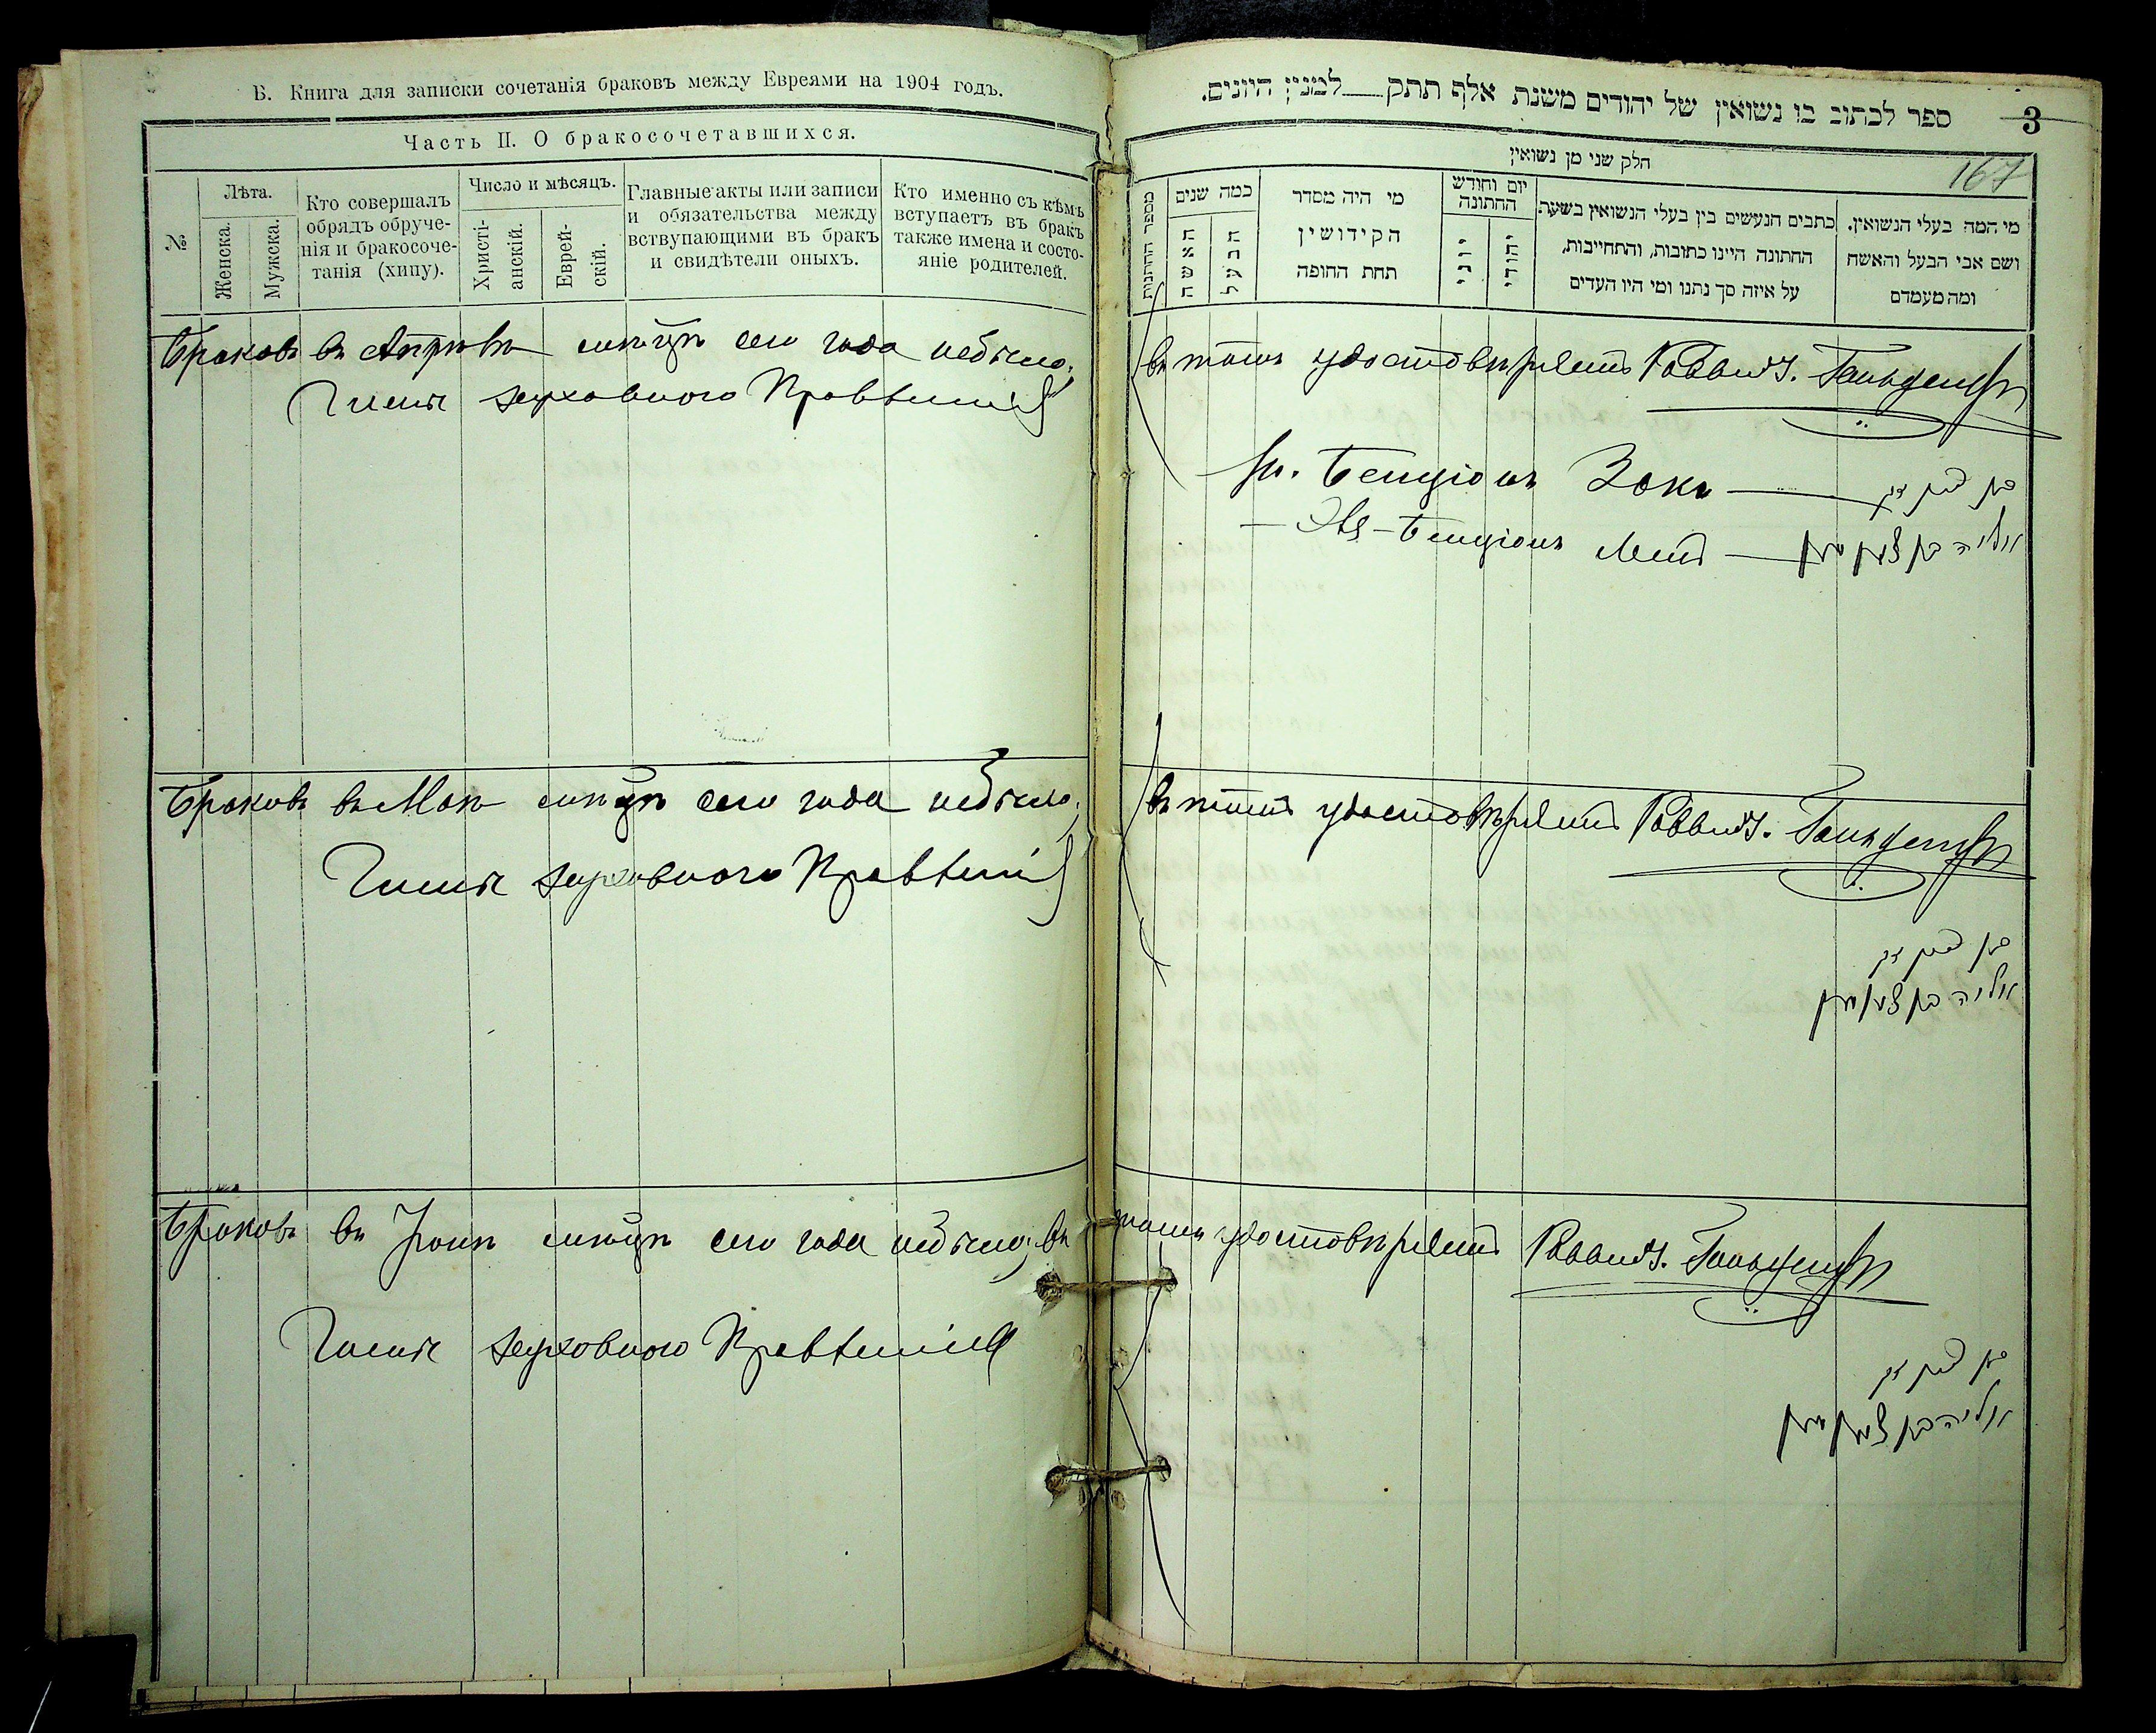 В. Книга для записки сочетанія браковъ между Евреями на 1904 годъ.
Часть II. О бракосочетавшихся.
№
Лѣта.
Женска.
Мужска.
Кто совершалъ
обрядъ обруче-
нія и бракосоче-
танія (хипу).
Число и мѣсяцъ.
Христі-
анскій.
Еврей-
скій.
Главные акты или записи
и обязательства между
вствупающими въ бракъ
и свидѣтели оныхъ.
Кто именно съ кѣмъ
вступаетъ въ бракъ
также имена и состо-
яніе родителей.
Браковъ въ Апрѣлѣ мѣсяцѣ сего года небыло,
Члены духовного Правленія
Браковъ въ Маѣ мѣсяцѣ сего года небыло,
Члены духовного Правленія
Браковъ въ Іюнѣ мѣсяцѣ сего года небыло, въ
Члены духовного Правленія
ספר לכתוב בו נשואין של יהודים משנת אלף תתק למנין היונים.
3
167
חלק שני מן נשואין
מספר החתונות
כמה שנים
האשה
הבעל
מי היה מסדר
הקידושין
תחת החופה
יום וחודש
החתונה
יוני
יהודי
כתבים הנעשים בין בעלי הנשואין בשעת
החתונה היינו כתובות, והתחייבות,
על איזה סך נתנו ומי היו העדים
מי המה בעלי הנשואין.
ושם אבי הבעל והאשה
ומה מעמדם
въ томъ удостовѣряетъ Раввинъ.
Бенціонъ Закъ
Бенціонъ
אליה בן ציון
въ томъ удостовѣряетъ Раввинъ.
אליה בן ציון
томъ удостовѣряетъ Раввинъ.
אליה בן ציון